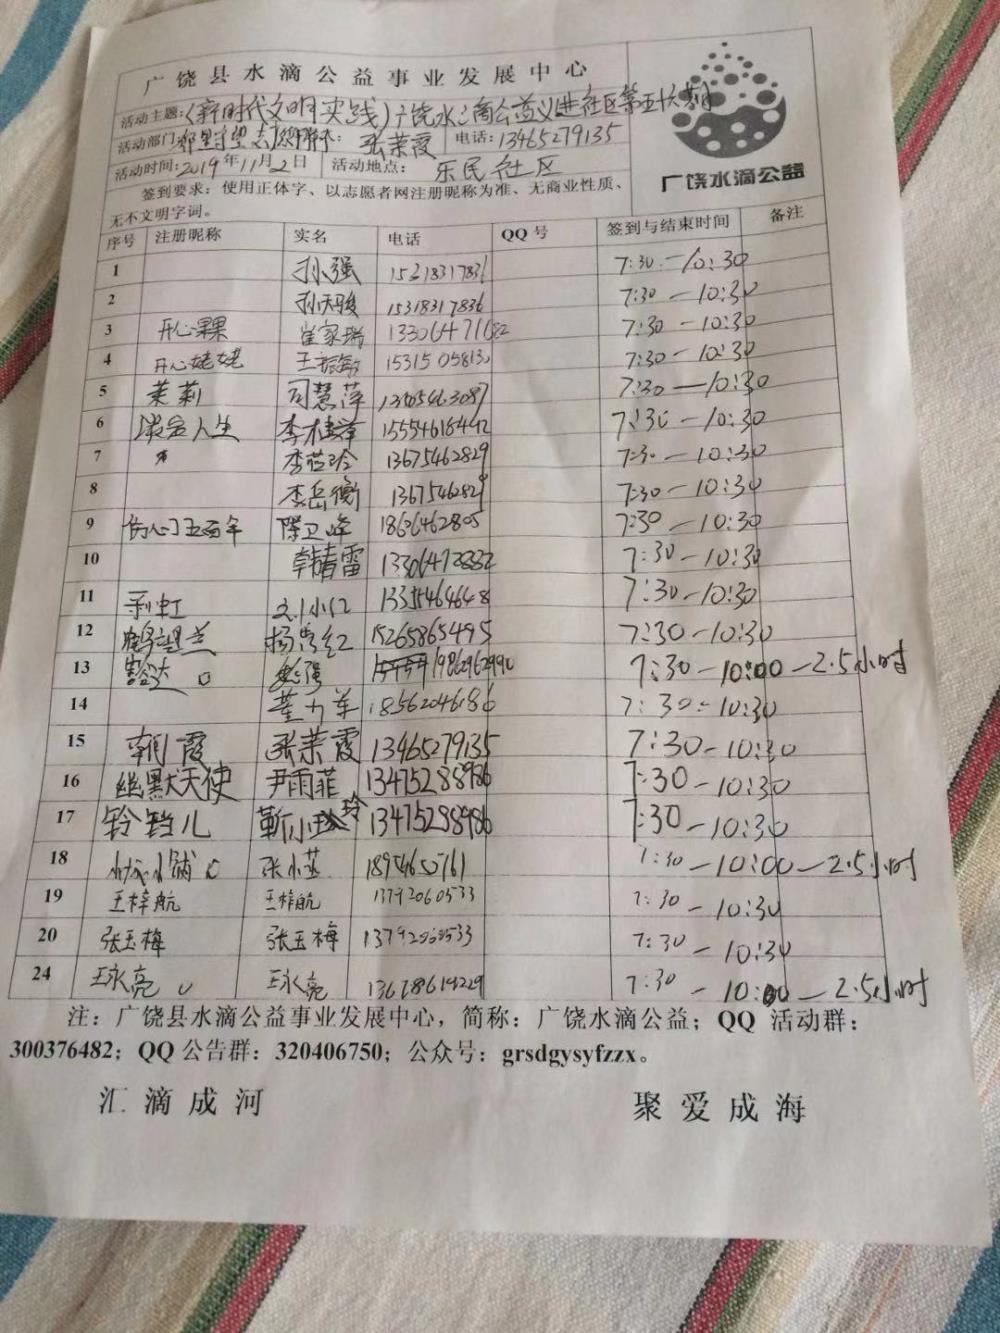 广饶县水滴公益事业发展中心
活动主题:(新时代文明实践)广饶水滴公益义进社区第五十六期
活动部门: 邻里守望志愿服务 张荣霞 电话:13465279135
活动时间:2019年11月2日 活动地点: 乐民社区
广饶水滴公益
签到要求：使用正体字、以志愿者网注册昵称为准、无商业性质、
无不文明字词。
序号 注册昵称 实名 电话 QQ号 签到与结束时间 备注
1 孙强 7:30-10:30
2 孙天骏 15318317836 7:30-10:30
3 开心果果 崔家瑞 7:30-10:30
4 开心姥姥 王振敏 15315058130 7:30-10:30
5 茉莉 司慧萍 13405463087 7:30-10:30
6 人生 李桂萍 15554618442 7:30-10:30
7 〃 13675462829 7:30-10:30
8 李岳衡 13675462829 7:30-10:30
9 伤心五百年 陈卫峰 18606462805 7:30-10:30
10 韩青雷 13306472882 7:30-10:30
11 彩虹 刘小红 7:30-10:30
12 杨忠红 15265865495 7:30-10:30
13 豁达 赵强 19862962990 7:30-10:00-2.5小时
14 董力军 18562046186 7:30-10:30
15 朝霞 张荣霞 13465279135 7:30-10:30
16 幽默天使 尹雨菲 13475288986 7:30-10:30
17 铃铛儿 靳小玲 13475288986 7:30-10:30
18 张小燕 18954605761 7:30-10:00-2.5小时
19 王梓航 王梓航 13792060533 7:30-10:30
20 张玉梅 张玉梅 13792060533 7:30-10:30
24 王永亮 王永亮 7:30-10:00-2.5小时
注：广饶县水滴公益事业发展中心，简称：广饶水滴公益；QQ 活动群：
300376482；QQ 公告群：320406750；公众号：grsdgysyfzzx。
汇滴成河 聚爱成海